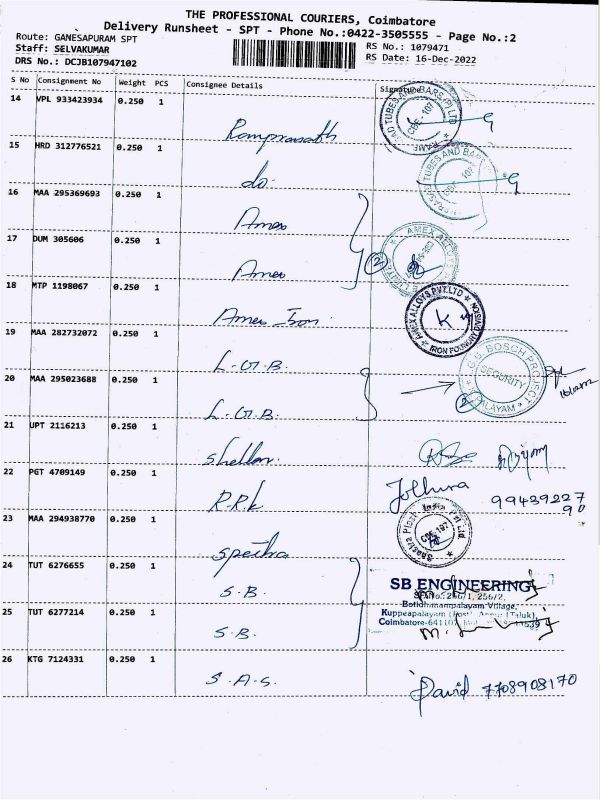 THE PROFESSIONAL COURIERS, Coimbatore
Delivery Runsheet - SPT - Phone No.:0422-3505555 - Page No.:2
Route: GANESAPURAM SPT
RS No.: 1079471
Staff: SELVAKUMAR
RS Date: 16-Dec-2022
DRS No.: DCJB107947102
S No Consignment No Weight PCS Consignee Details Signature
14 VPL 933423934 0.250 1 Ramprasath
CBE-107
15 HRD 312776521 0.250 1 do
TUBES AND BARS
16 MAA 295369693 0.250 1 Amex
17 DUM 305606 0.250 1 Amex
2
18 MTP 1198067 0.250 1 Amex Iron
AMEX ALLOYS PVT LTD
IRON FOUNDRY DIVISION
K
19 MAA 282732072 0.250 1 L.G.B.
BOSCH PROJECT
SECURITY
20 MAA 295023688 0.250 1 L.G.B.
2
21 UPT 2116213 0.250 1
22 PGT 4709149 0.250 1 R.R.K
99439227
90
23 MAA 294938770 0.250 1 Spectra
24 TUT 6276655 0.250 1 S.B.
SB ENGINEERING
256/2,
Village,
Kuppeapalayam
25 TUT 6277214 0.250 1 S.B.
26 KTG 7124331 0.250 1 S.A.S.
David 7708908170